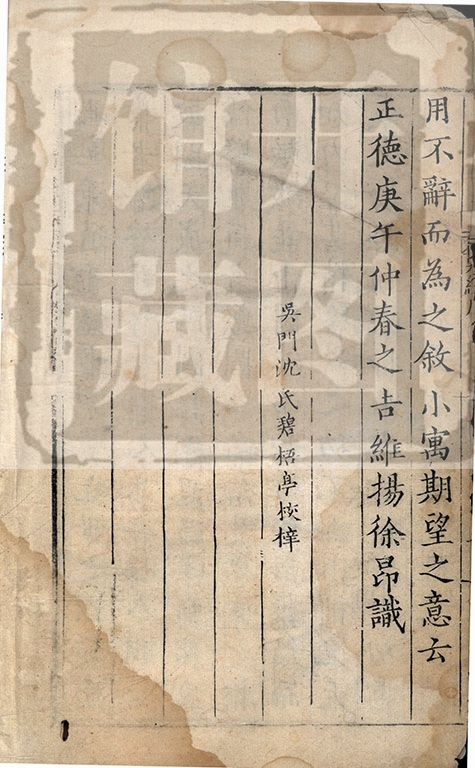 用不辭而為之敘小寓期望之意云
正德庚午仲春之吉維揚徐昂識
吳門沈氏碧梧亭校梓